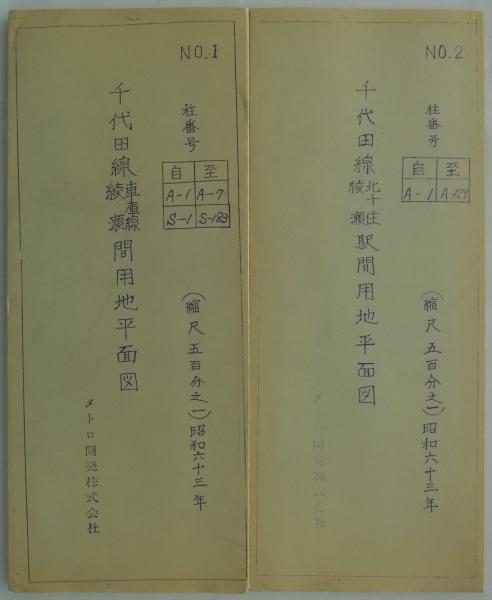 NO.1
柱番号
自 至
A-1 A-7
S-1 S-183
千代田線綾瀬車庫線間用地平面図
(縮尺五百分之一)昭和六十三年
メトロ開発株式会社
NO.2
柱番号
自 至
A-1
千代田線北千住綾瀬駅間用地平面図
(縮尺五百分之一)昭和六十三年
メトロ開発株式会社